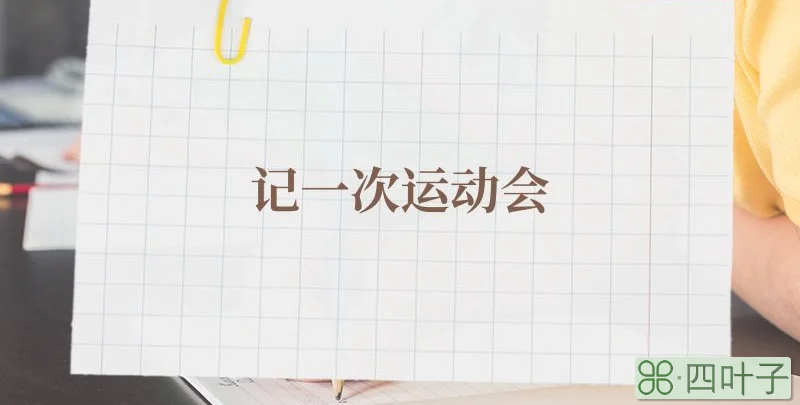 记一次运动会
四叶子